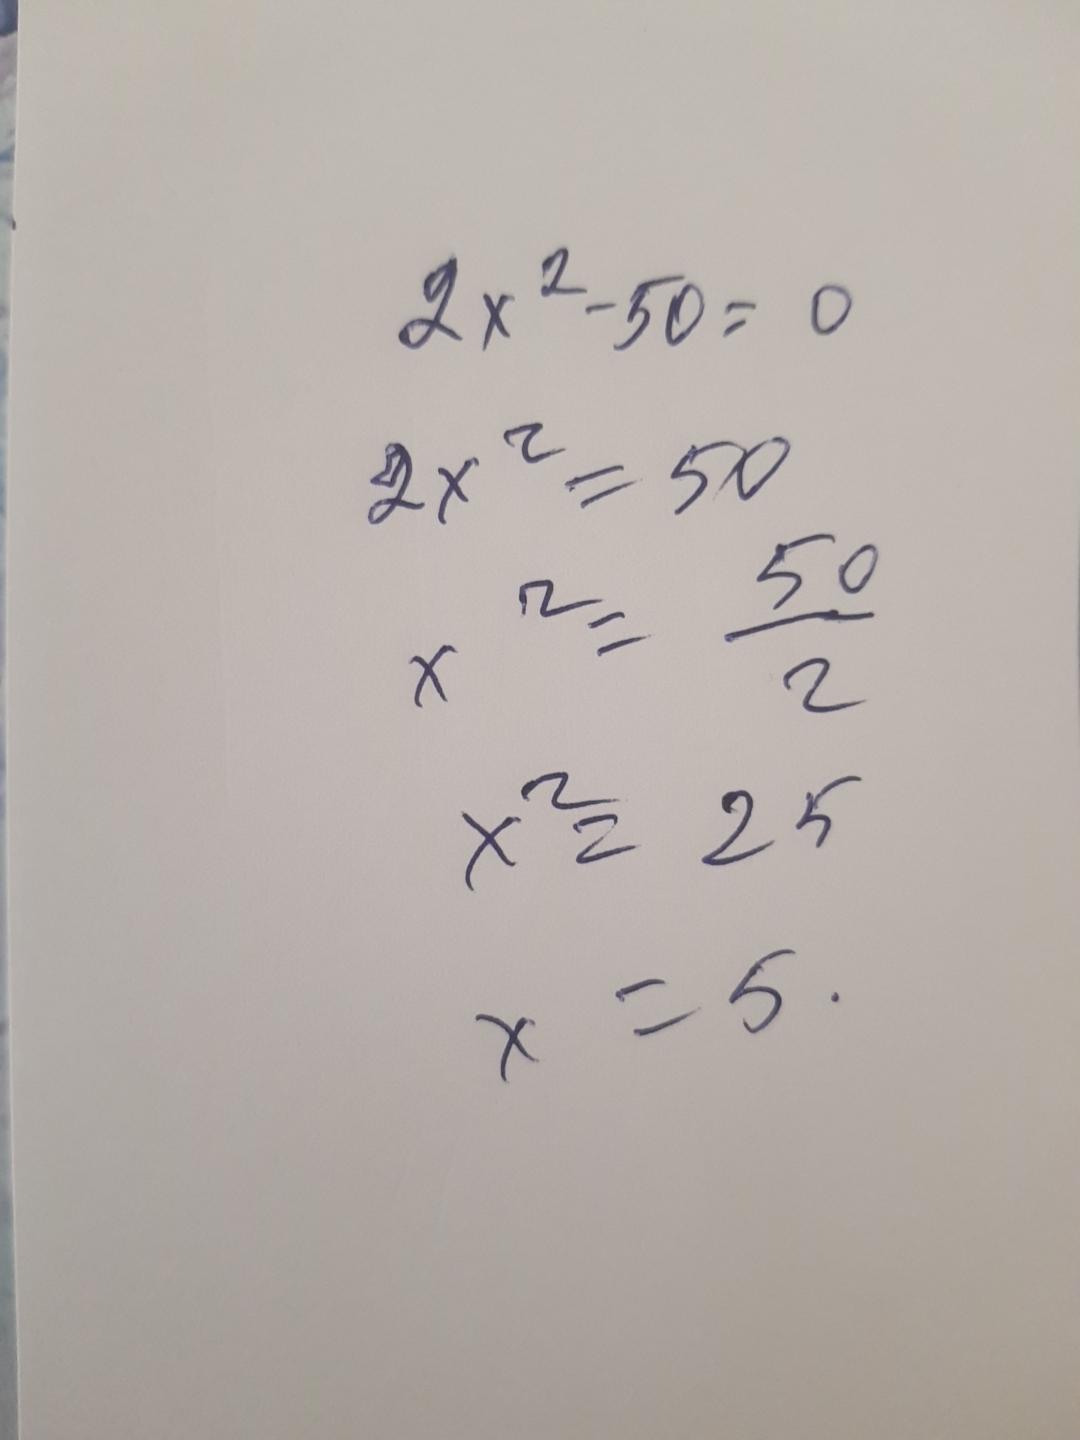 2x² - 50 = 0
2x² = 50
x² = 50/2
x² = 25
x = 5.